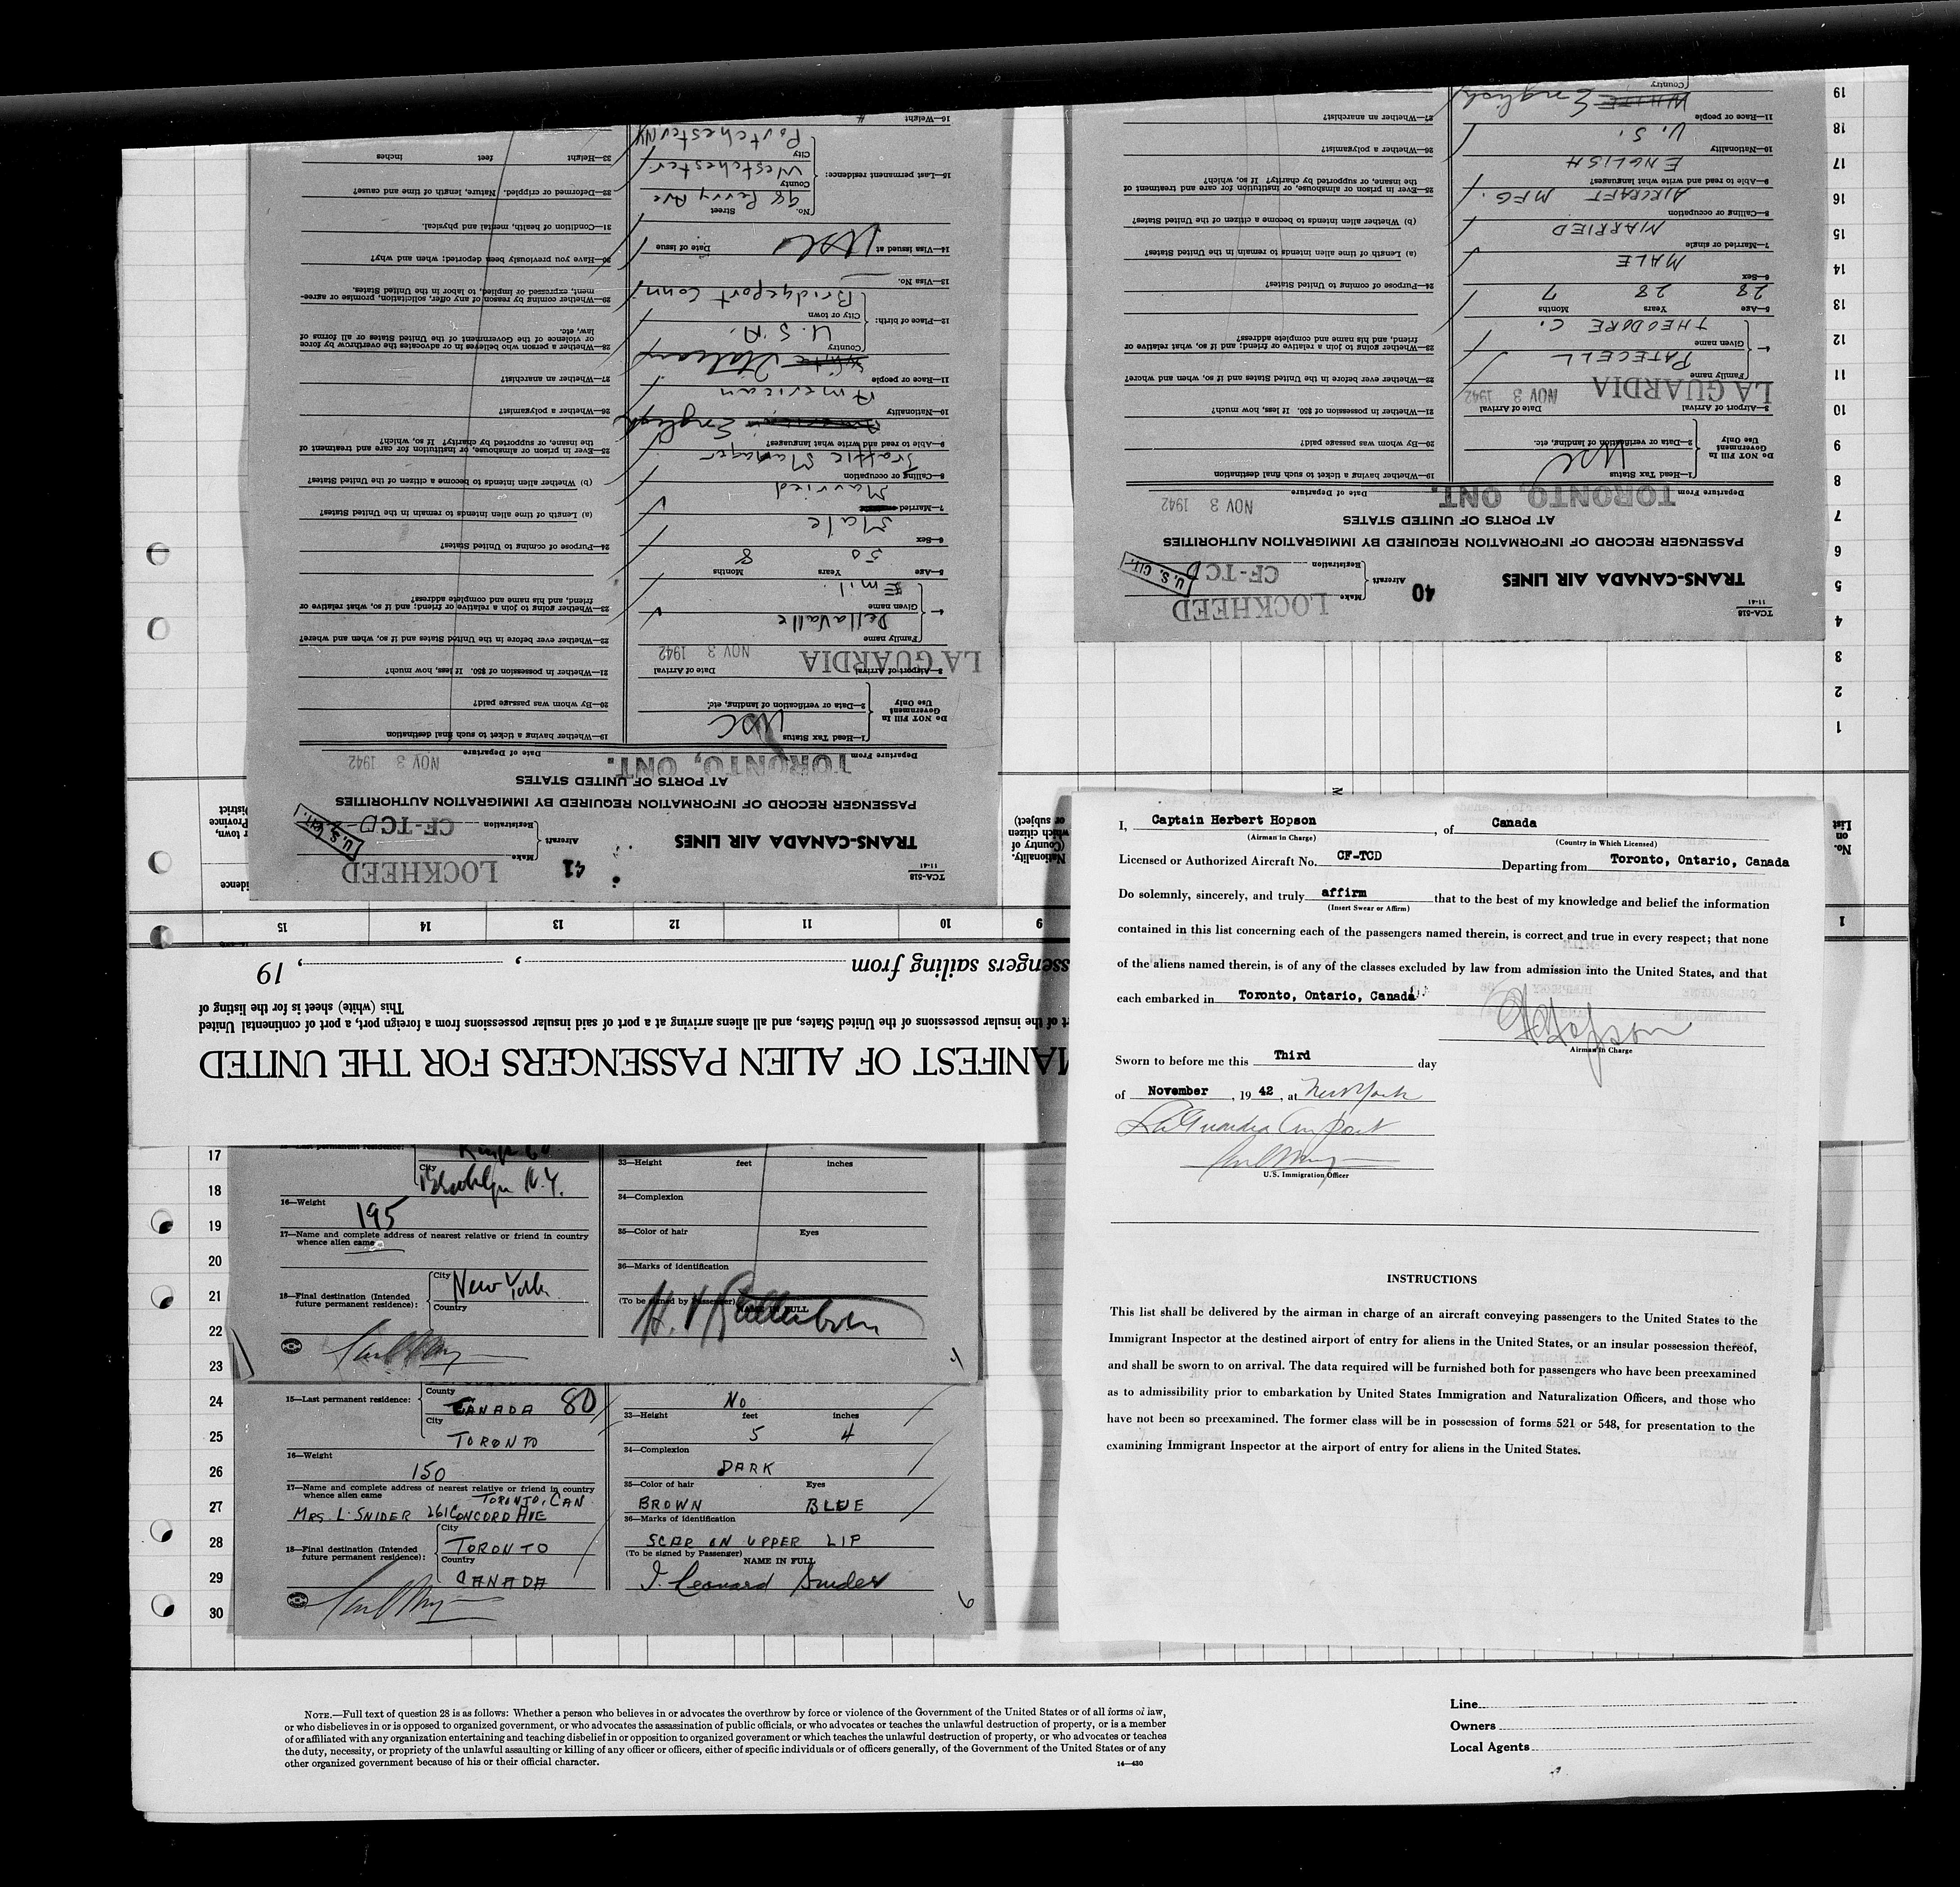 TCA-518
11-41
TRANS-CANADA AIR LINES
41
Aircraft
Make
LOCKHEED
Registration
CF-TCD
U. S. CIT.
PASSENGER RECORD OF INFORMATION REQUIRED BY IMMIGRATION AUTHORITIES
AT PORTS OF UNITED STATES
Departure From
TORONTO, ONT.
Date of Departure
NOV 3 1942
DO NOT FILL IN
Government
Use Only
1—Head Tax Status
USC
2—Data or verification of landing, etc.
3—Airport of Arrival
LA GUARDIA
Date of Arrival
NOV 3 1942
4
Family name
DellaValle
Given name
Emil
5—Age
50
Years
8
Months
6—Sex
Male
7—Married
Married
8—Calling or occupation
Traffic Manager
9—Able to read and write what languages?
English
10—Nationality
American
11—Race or people
White Italian
12—Place of birth:
Country
U.S.A.
City or town
Bridgeport Conn
13—Visa No.
14—Visa issued at
USC
Date of issue
15—Last permanent residence:
No.
Street
98 Perry Ave
County
Westchester
City
Portchester NY
16—Weight
19—Whether having a ticket to such final destination
20—By whom was passage paid?
21—Whether in possession of $50. If less, how much?
22—Whether ever before in the United States and if so, when and where?
23—Whether going to join a relative or friend; and if so, what relative or
friend, and his name and complete address?
24—Purpose of coming to United States?
(a) Length of time alien intends to remain in the United States?
(b) Whether alien intends to become a citizen of the United States?
25—Ever in prison or almshouse, or institution for care and treatment of
the insane, or supported by charity? If so, which?
26—Whether a polygamist?
27—Whether an anarchist?
28—Whether a person who believes in or advocates the overthrow by force
or violence of the Government of the United States or all forms of
law, etc.
29—Whether coming by reason of any offer, solicitation, promise or agree-
ment, expressed or implied, to labor in the United States.
30—Have you previously been deported; when and why?
31—Condition of health, mental and physical.
32—Deformed or crippled. Nature, length of time and cause?
33—Height
feet
inches
TCA-518
11-41
TRANS-CANADA AIR LINES
40
Aircraft
Make
LOCKHEED
Registration
CF-TCD
U. S. CIT.
PASSENGER RECORD OF INFORMATION REQUIRED BY IMMIGRATION AUTHORITIES
AT PORTS OF UNITED STATES
Departure From
TORONTO, ONT.
Date of Departure
NOV 3 1942
DO NOT FILL IN
Government
Use Only
1—Head Tax Status
USC
2—Data or verification of landing, etc.
3—Airport of Arrival
LA GUARDIA
Date of Arrival
NOV 3 1942
4
Family name
PATECELL
Given name
THEODORE C.
5—Age
28
Years
28
Months
7
6—Sex
MALE
7—Married or single
MARRIED
8—Calling or occupation
AIRCRAFT MFG.
9—Able to read and write what languages?
ENGLISH
10—Nationality
U. S.
11—Race or people
WHITE English
Country
19—Whether having a ticket to such final destination
20—By whom was passage paid?
21—Whether in possession of $50. If less, how much?
22—Whether ever before in the United States and if so, when and where?
23—Whether going to join a relative or friend; and if so, what relative or
friend, and his name and complete address?
24—Purpose of coming to United States?
(a) Length of time alien intends to remain in the United States?
(b) Whether alien intends to become a citizen of the United States?
25—Ever in prison or almshouse, or institution for care and treatment of
the insane, or supported by charity? If so, which?
26—Whether a polygamist?
27—Whether an anarchist?
1
2
3
4
5
6
7
8
9
10
11
12
13
14
15
16
17
18
19
No.
on
List
1
9
10
11
12
13
14
15
Nationality.
(Country of
which citizen
or subject)
MANIFEST OF ALIEN PASSENGERS FOR THE UNITED
of the insular possessions of the United States, and all aliens arriving at a port of said insular possessions from a foreign port, a port of continental United
This (white) sheet is for the listing of
sailing from
, 19
I, Captain Herbert Hopson, of Canada
(Airman in Charge)
(Country in Which Licensed)
Licensed or Authorized Aircraft No. CF-TCD Departing from Toronto, Ontario, Canada
Do solemnly, sincerely, and truly affirm that to the best of my knowledge and belief the information
(Insert Swear or Affirm)
contained in this list concerning each of the passengers named therein, is correct and true in every respect; that none
of the aliens named therein, is of any of the classes excluded by law from admission into the United States, and that
each embarked in Toronto, Ontario, Canada
H Hopson
Airman in Charge
Sworn to before me this Third day
of November, 19 42, at New York
La Guardia Airport
U.S. Immigration Officer
INSTRUCTIONS
This list shall be delivered by the airman in charge of an aircraft conveying passengers to the United States to the
Immigrant Inspector at the destined airport of entry for aliens in the United States, or an insular possession thereof,
and shall be sworn to on arrival. The data required will be furnished both for passengers who have been preexamined
as to admissibility prior to embarkation by United States Immigration and Naturalization Officers, and those who
have not been so preexamined. The former class will be in possession of forms 521 or 548, for presentation to the
examining Immigrant Inspector at the airport of entry for aliens in the United States.
17
18
19
20
21
22
23
24
25
26
27
28
29
30
City
Brooklyn N.Y.
16—Weight
195
17—Name and complete address of nearest relative or friend in country
whence alien came
18—Final destination (Intended
future permanent residence):
City
New York
Country
33—Height
feet
inches
34—Complexion
35—Color of hair
Eyes
36—Marks of identification
(To be signed by Passenger)
NAME IN FULL
15—Last permanent residence:
County
CANADA 80
City
TORONTO
16—Weight
150
17—Name and complete address of nearest relative or friend in country
whence alien came
TORONTO, CAN
MRS. L. SNIDER 261 CONCORD AVE
18—Final destination (Intended
future permanent residence):
City
TORONTO
Country
CANADA
No
33—Height
feet
inches
5 4
34—Complexion
DARK
35—Color of hair
Eyes
BROWN BLUE
36—Marks of identification
SCAR ON UPPER LIP
(To be signed by Passenger)
NAME IN FULL
I. Leonard Snider
NOTE.—Full text of question 28 is as follows: Whether a person who believes in or advocates the overthrow by force or violence of the Government of the United States or of all forms of law,
or who disbelieves in or is opposed to organized government, or who advocates the assassination of public officials, or who advocates or teaches the unlawful destruction of property, or is a member
of or affiliated with any organization entertaining and teaching disbelief in or opposition to organized government or which teaches the unlawful destruction of property, or who advocates or teaches
the duty, necessity, or propriety of the unlawful assaulting or killing of any officer or officers, either of specific individuals or of officers generally, of the Government of the United States or of any
other organized government because of his or their official character.
14—430
Line
Owners
Local Agents